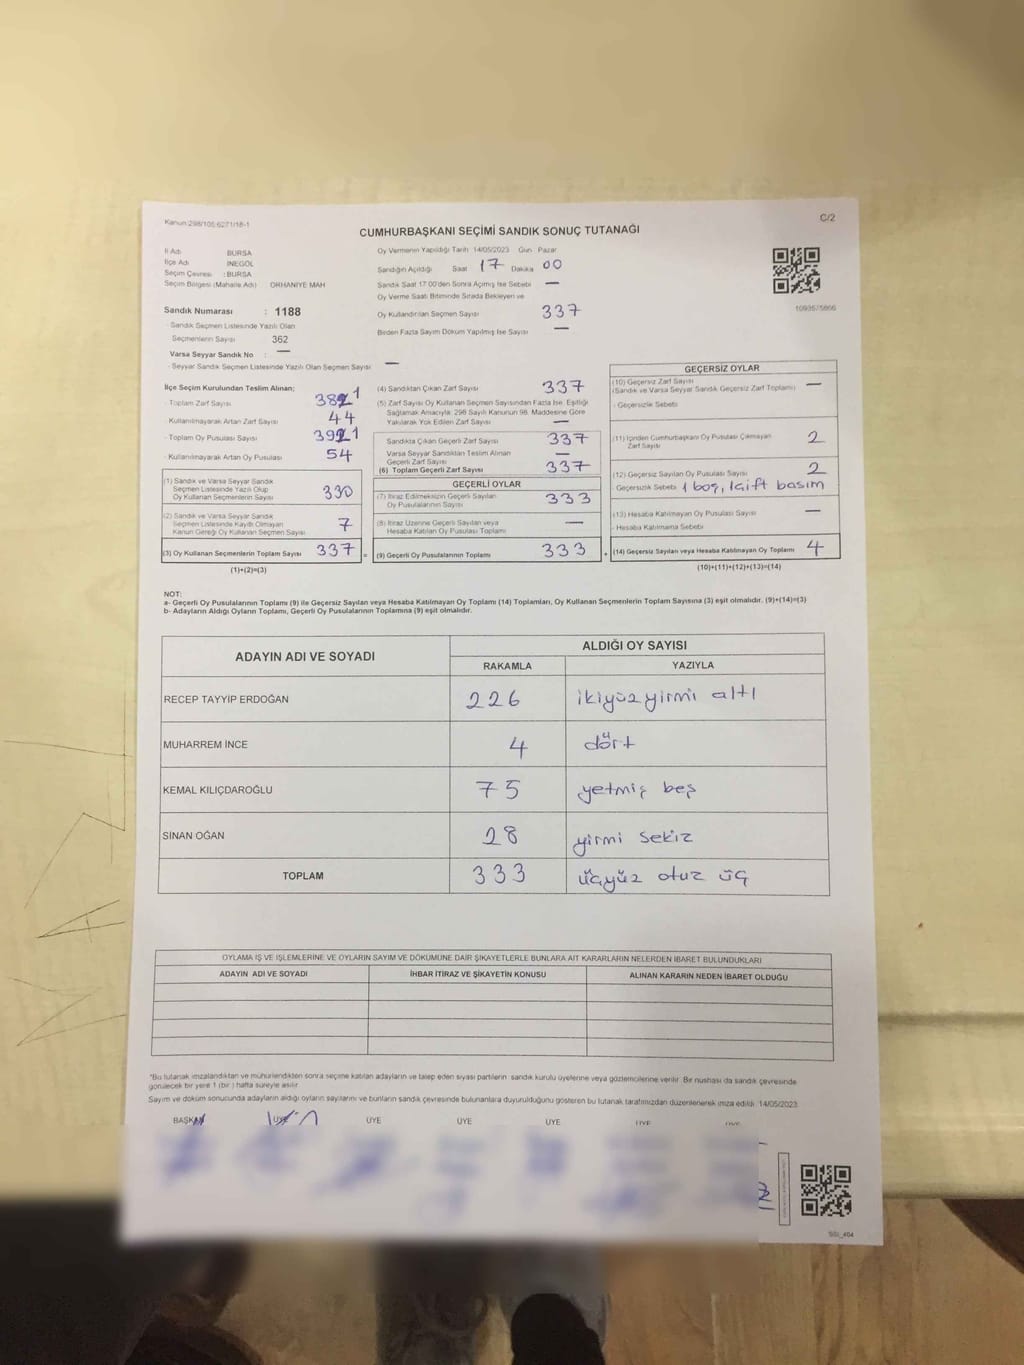 Kanun:298/105:6271/18-1
C/2
CUMHURBAŞKANI SEÇİMİ SANDIK SONUÇ TUTANAĞI
İl Adı : BURSA
İlçe Adı : İNEGÖL
Seçim Çevresi : BURSA
Seçim Bölgesi (Mahalle Adı) ORHANİYE MAH
Sandık Numarası : 1188
- Sandık Seçmen Listesinde Yazılı Olan
Seçmenlerin Sayısı 362
Varsa Seyyar Sandık No : —
- Seyyar Sandık Seçmen Listesinde Yazılı Olan Seçmen Sayısı —
Oy Vermenin Yapıldığı Tarih 14/05/2023 Gün Pazar
Sandığın Açıldığı Saat 17 Dakika 00
Sandık Saat 17.00'den Sonra Açılmış İse Sebebi —
Oy Verme Saati Bitiminde Sırada Bekleyen ve
Oy Kullandırılan Seçmen Sayısı 337
Birden Fazla Sayım Döküm Yapılmış İse Sayısı —
İlçe Seçim Kurulundan Teslim Alınan;
- Toplam Zarf Sayısı 381
- Kullanılmayarak Artan Zarf Sayısı 44
- Toplam Oy Pusulası Sayısı 391
- Kullanılmayarak Artan Oy Pusulası 54
(1) Sandık ve Varsa Seyyar Sandık
Seçmen Listesinde Yazılı Olup
Oy Kullanan Seçmenlerin Sayısı 330
(2) Sandık ve Varsa Seyyar Sandık
Seçmen Listesinde Kayıtlı Olmayan
Kanun Gereği Oy Kullanan Seçmen Sayısı 7
(3) Oy Kullanan Seçmenlerin Toplam Sayısı 337 =
(1)+(2)=(3)
(4) Sandıktan Çıkan Zarf Sayısı 337
(5) Zarf Sayısı Oy Kullanan Seçmen Sayısından Fazla İse, Eşitliği
Sağlamak Amacıyla, 298 Sayılı Kanunun 98. Maddesine Göre
Yakılarak Yok Edilen Zarf Sayısı —
Sandıkta Çıkan Geçerli Zarf Sayısı 337
Varsa Seyyar Sandıktan Teslim Alınan
Geçerli Zarf Sayısı —
(6) Toplam Geçerli Zarf Sayısı 337
GEÇERLİ OYLAR
(7) İtiraz Edilmeksizin Geçerli Sayılan
Oy Pusulalarının Sayısı 333
(8) İtiraz Üzerine Geçerli Sayılan veya
Hesaba Katılan Oy Pusulası Toplamı —
(9) Geçerli Oy Pusulalarının Toplamı 333 +
GEÇERSİZ OYLAR
(10) Geçersiz Zarf Sayısı
(Sandık ve Varsa Seyyar Sandık Geçersiz Zarf Toplamı) —
- Geçersizlik Sebebi
(11) İçinden Cumhurbaşkanı Oy Pusulası Çıkmayan
Zarf Sayısı 2
(12) Geçersiz Sayılan Oy Pusulası Sayısı 2
- Geçersizlik Sebebi 1 boş, 1 çift basım
(13) Hesaba Katılmayan Oy Pusulası Sayısı —
- Hesaba Katılmama Sebebi
(14) Geçersiz Sayılan veya Hesaba Katılmayan Oy Toplamı 4
(10)+(11)+(12)+(13)=(14)
NOT:
a- Geçerli Oy Pusulalarının Toplamı (9) ile Geçersiz Sayılan veya Hesaba Katılmayan Oy Toplamı (14) Toplamları, Oy Kullanan Seçmenlerin Toplam Sayısına (3) eşit olmalıdır. (9)+(14)=(3)
b- Adayların Aldığı Oyların Toplamı, Geçerli Oy Pusulalarının Toplamına (9) eşit olmalıdır.
ADAYIN ADI VE SOYADI
ALDIĞI OY SAYISI
RAKAMLA YAZIYLA
RECEP TAYYİP ERDOĞAN 226 ikiyüz yirmi altı
MUHARREM İNCE 4 dört
KEMAL KILIÇDAROĞLU 75 yetmiş beş
SİNAN OĞAN 28 yirmi sekiz
TOPLAM 333 üçyüz otuz üç
OYLAMA İŞ VE İŞLEMLERİNE VE OYLARIN SAYIM VE DÖKÜMÜNE DAİR ŞİKAYETLERLE BUNLARA AİT KARARLARIN NELERDEN İBARET BULUNDUKLARI
ADAYIN ADI VE SOYADI İHBAR İTİRAZ VE ŞİKAYETİN KONUSU ALINAN KARARIN NEDEN İBARET OLDUĞU
*Bu tutanak imzalandıktan ve mühürlendikten sonra seçime katılan adayların ve talep eden siyasi partilerin sandık kurulu üyelerine veya gözlemcilerine verilir. Bir nushası da sandık çevresinde
görülecek bir yere 1 (bir ) hafta süreyle asılır.
Sayım ve döküm sonucunda adayların aldığı oyların sayılarını ve bunların sandık çevresinde bulunanlara duyurulduğunu gösteren bu tutanak tarafımızdan düzenlenerek imza edildi. 14/05/2023
BAŞKAN ÜYE ÜYE ÜYE ÜYE ÜYE ÜYE